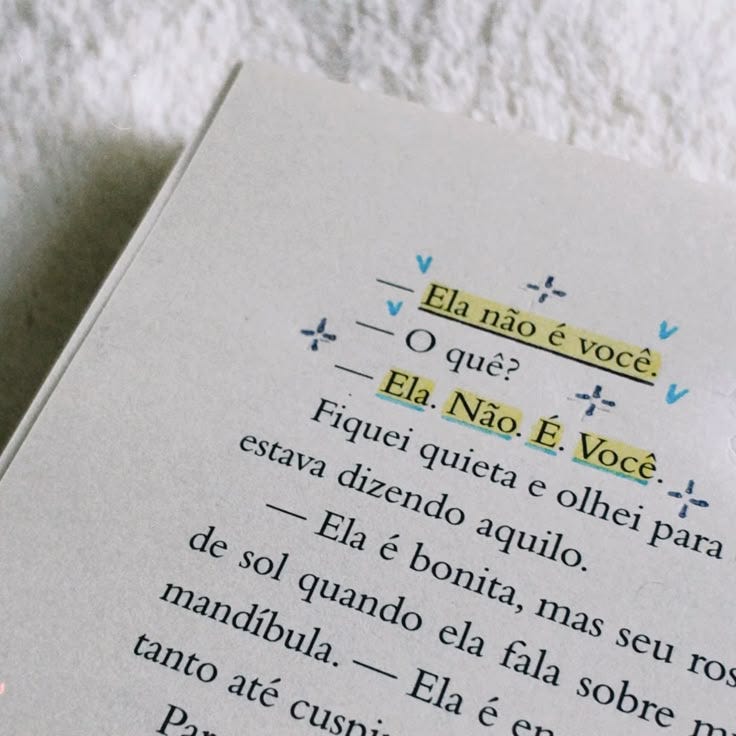 — Ela não é você.
— O quê?
— Ela. Não. É. Você.
Fiquei quieta e olhei para
estava dizendo aquilo.
— Ela é bonita, mas seu
de sol quando ela fala sobre
mandíbula. — Ela é
tanto até